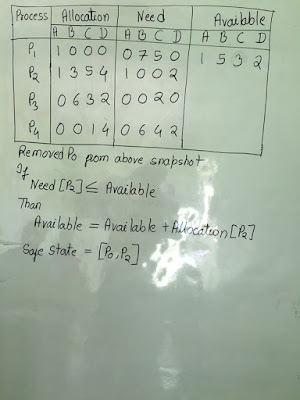 Process Allocation Need Available
A B C D A B C D A B C D
P1 1 0 0 0 0 7 5 0 1 5 3 2
P2 1 3 5 4 1 0 0 2
P3 0 6 3 2 0 0 2 0
P4 0 0 1 4 0 6 4 2
Removed P0 from above snapshot
If
Need [P2] ≤ Available
Than
Available = Available + Allocation [P2]
Safe State = [P0, P2]